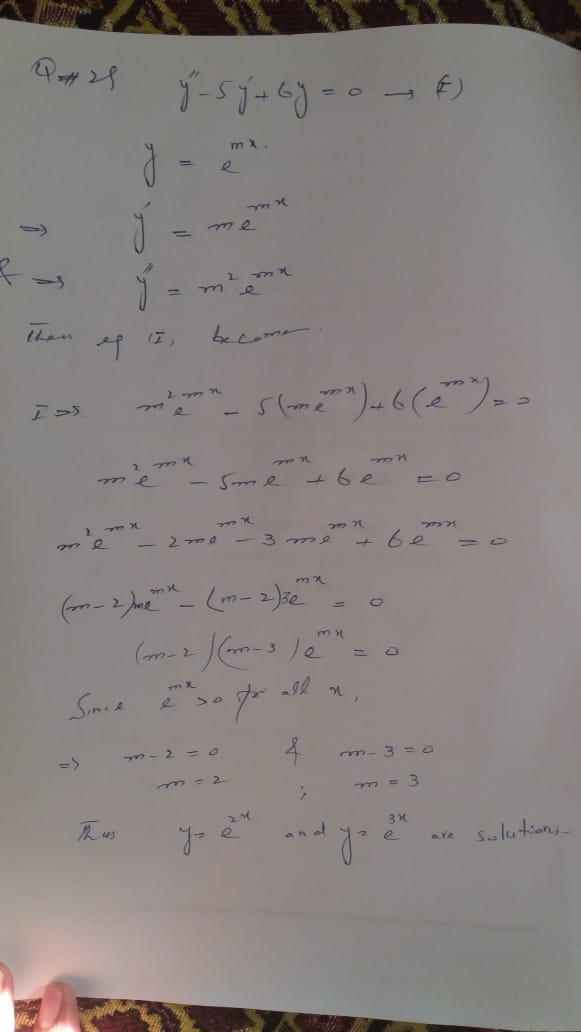 Q#29 y'' - 5y' + 6y = 0 → (I)
y = e^{mx}.
⇒ y' = me^{mx}
& ⇒ y'' = m²e^{mx}
Then eq (I), become.
I ⇒ m²e^{mx} - 5(me^{mx}) + 6(e^{mx}) = 0
m²e^{mx} - 5me^{mx} + 6e^{mx} = 0
m²e^{mx} - 2me^{mx} - 3me^{mx} + 6e^{mx} = 0
(m-2)me^{mx} - (m-2)3e^{mx} = 0
(m-2)(m-3)e^{mx} = 0
Since e^{mx} >0 for all x,
⇒ m-2 = 0 & m-3 = 0
m = 2 ; m = 3
Thus y = e^{2x} and y = e^{3x} are solutions